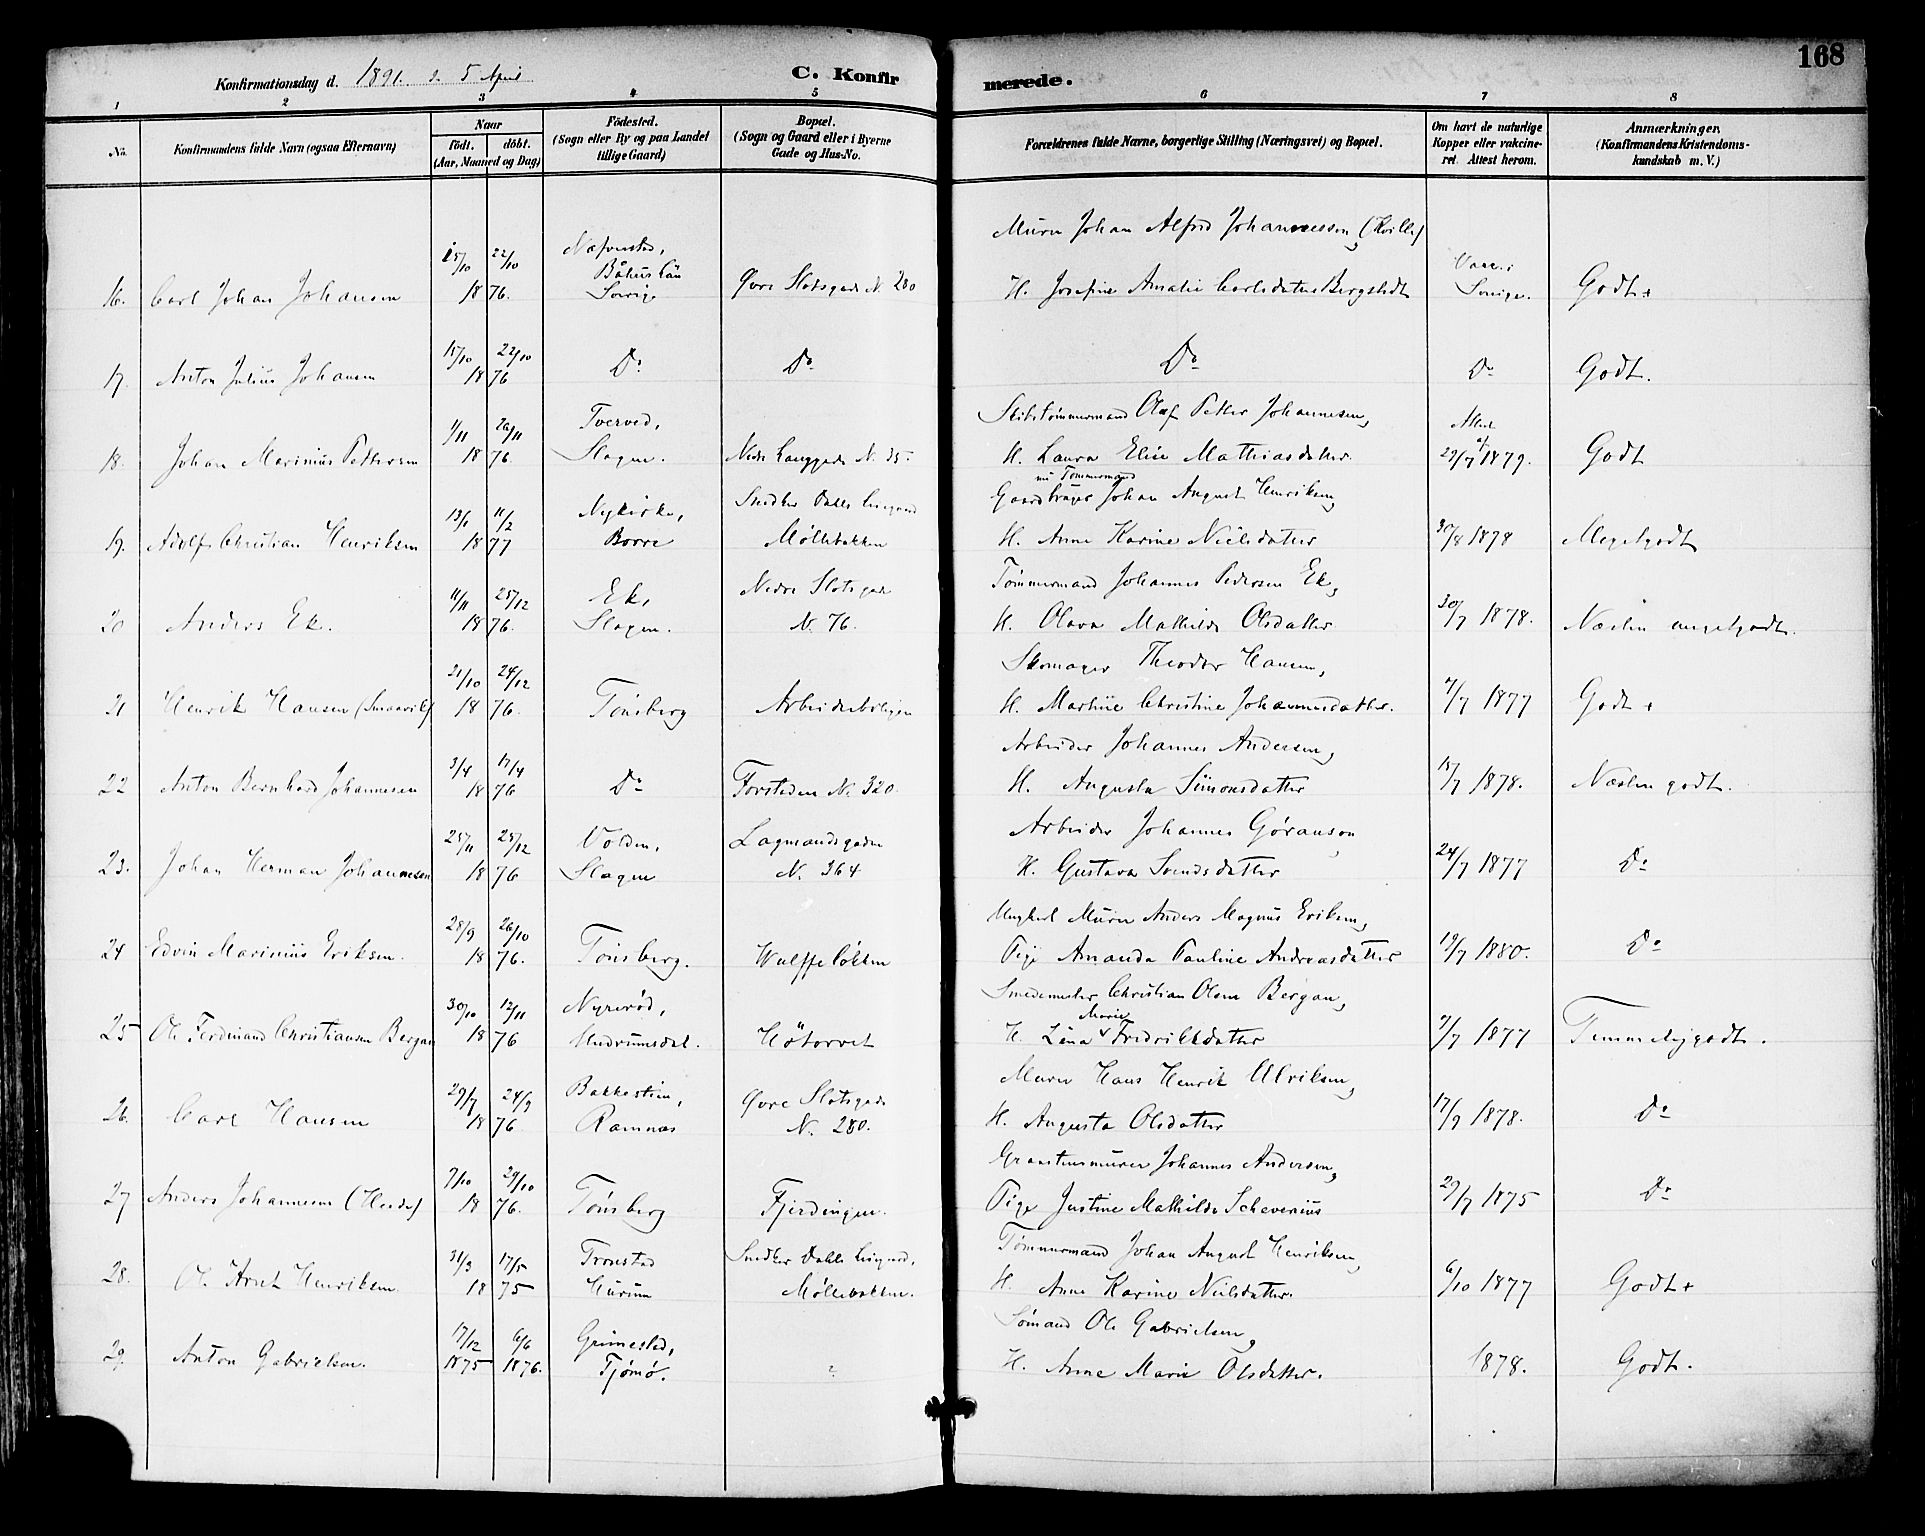 168
Konfirmationsdag d. 1891. d. 5 April
C. Konfirmerede.
1 2 3 4 5 6 7 8
No.
Konfirmandens fulde Navn (ogsaa Efternavn)
Naar
födt. döbt.
(Aar, Maaned og Dag)
Födested.
(Sogn eller By og paa Landet
tillige Gaard)
Bopæl.
(Sogn og Gaard eller i Byerne
Gade og Hus-No.
Forældrenes fulde Navne, borgerlige Stilling (Næringsvei) og Bopæl.
Om havt de naturlige
Kopper eller vakcine-
ret. Attest herom.
Anmærkninger.
(Konfirmandens Kristendoms-
kundskab m. V.)
Murer Johan Alfred Johannessen (Kville)
15/10 22/10 Båhus Län Vacc. i
16. Carl Johan Johansen 18 76. Sverige Øvre Slotsgade N. 280 H. Josefine Amalie Carlsdatter Bergstedt Sverige. Godt+
15/10 22/10
17. Anton Julius Johansen 18 76 Do. Do. Do Do Godt.
1/11 26/11 Tverved, Skibstømmermand Olaf Petter Johannesen, Attest
18. Johan Marinius Pettersen 18 76. Slagen. Nedre Langgade N. 35. H. Laura Elise Mathiasdatter. 29/7 1879. Godt
nu Tømmermand
13/1 11/2 Nykirke, Snedker Dahls Gaardbruger Johan August Henriksen,
19. Adolf Christian Henriksen 18 77 Borre Møllebakken H. Anne Karine Nielsdatter 30/8 1878 Megetgodt
11/11 25/12 Ek, Nedre Slotsgade Tømmermand Johannes Pedersen Ek,
20 Anders Ek. 18 76. Slagen. N. 76. H. Olava Mathilde Olsdatter 30/7 1878. Næsten megetgodt.
21/10 24/12 Skomager Theodor Hansen,
21 Henrik Hansen (Smaavik) 18 76. Tønsberg Arbeiderboligen H. Martine Christine Johannesdatter. 7/7 1877 Godt+
3/4 17/4 Arbeider Johannes Andersen,
22 Anton Bernhard Johannesen 18 76 Do Forstaden N. 320. H. Augusta Simonsdatter 15/7 1878. Næsten godt.
25/11 25/12 Volden, Lagmandsgaden Arbeider Johannes Göranson,
23. Johan Herman Johannesen 18 76 Slagen N. 364 H. Gustava Svendsdatter 24/7 1877 Do
28/9 26/10 Ungkarl Murer Anders Magnus Eriksen,
24 Edvin Marinius Eriksen. 18 76. Tønsberg. Wulffeløkken Pige Amanda Pauline Andreasdatter 19/7 1880. Do
30/10 12/11 Smedemester Christian Olsen Bergan,
Marie
25 Ole Ferdinand Christiansen Bergan 18 76 Høtorvet H. Lina Fredrikkdatter 7/7 1877 Temmeligodt.
29/7 24/9 Bakkestien, Øvre Slotsgade Murer Hans Henrik Ulriksen,
26. Carl Hansen 18 76 Ramnæs N. 280. H. Augusta Olsdatter 17/9 1878. Do
7/10 29/10 Granitensmurer Johannes Andersen,
27 Anders Johannesen 18 76. Tønsberg Fjerdingen. Pige Justine Mathilde Schevenius 29/7 1875 Do
31/3 17/5 Tronstad Snedker Dahls Tømmermand Johan August Henriksen,
28. Ole Arnt Henriksen 18 75 Hurum Møllebakken. H. Anne Karine Nielsdatter. 6/10 1877 Godt+
17/12 6/6 Grimestad, Sømand Ole Gabrielsen,
29. Anton Gabrielsen. 1875 1876. Tjømø. ? H. Anne Marie Olsdatter. 1878. Godt.